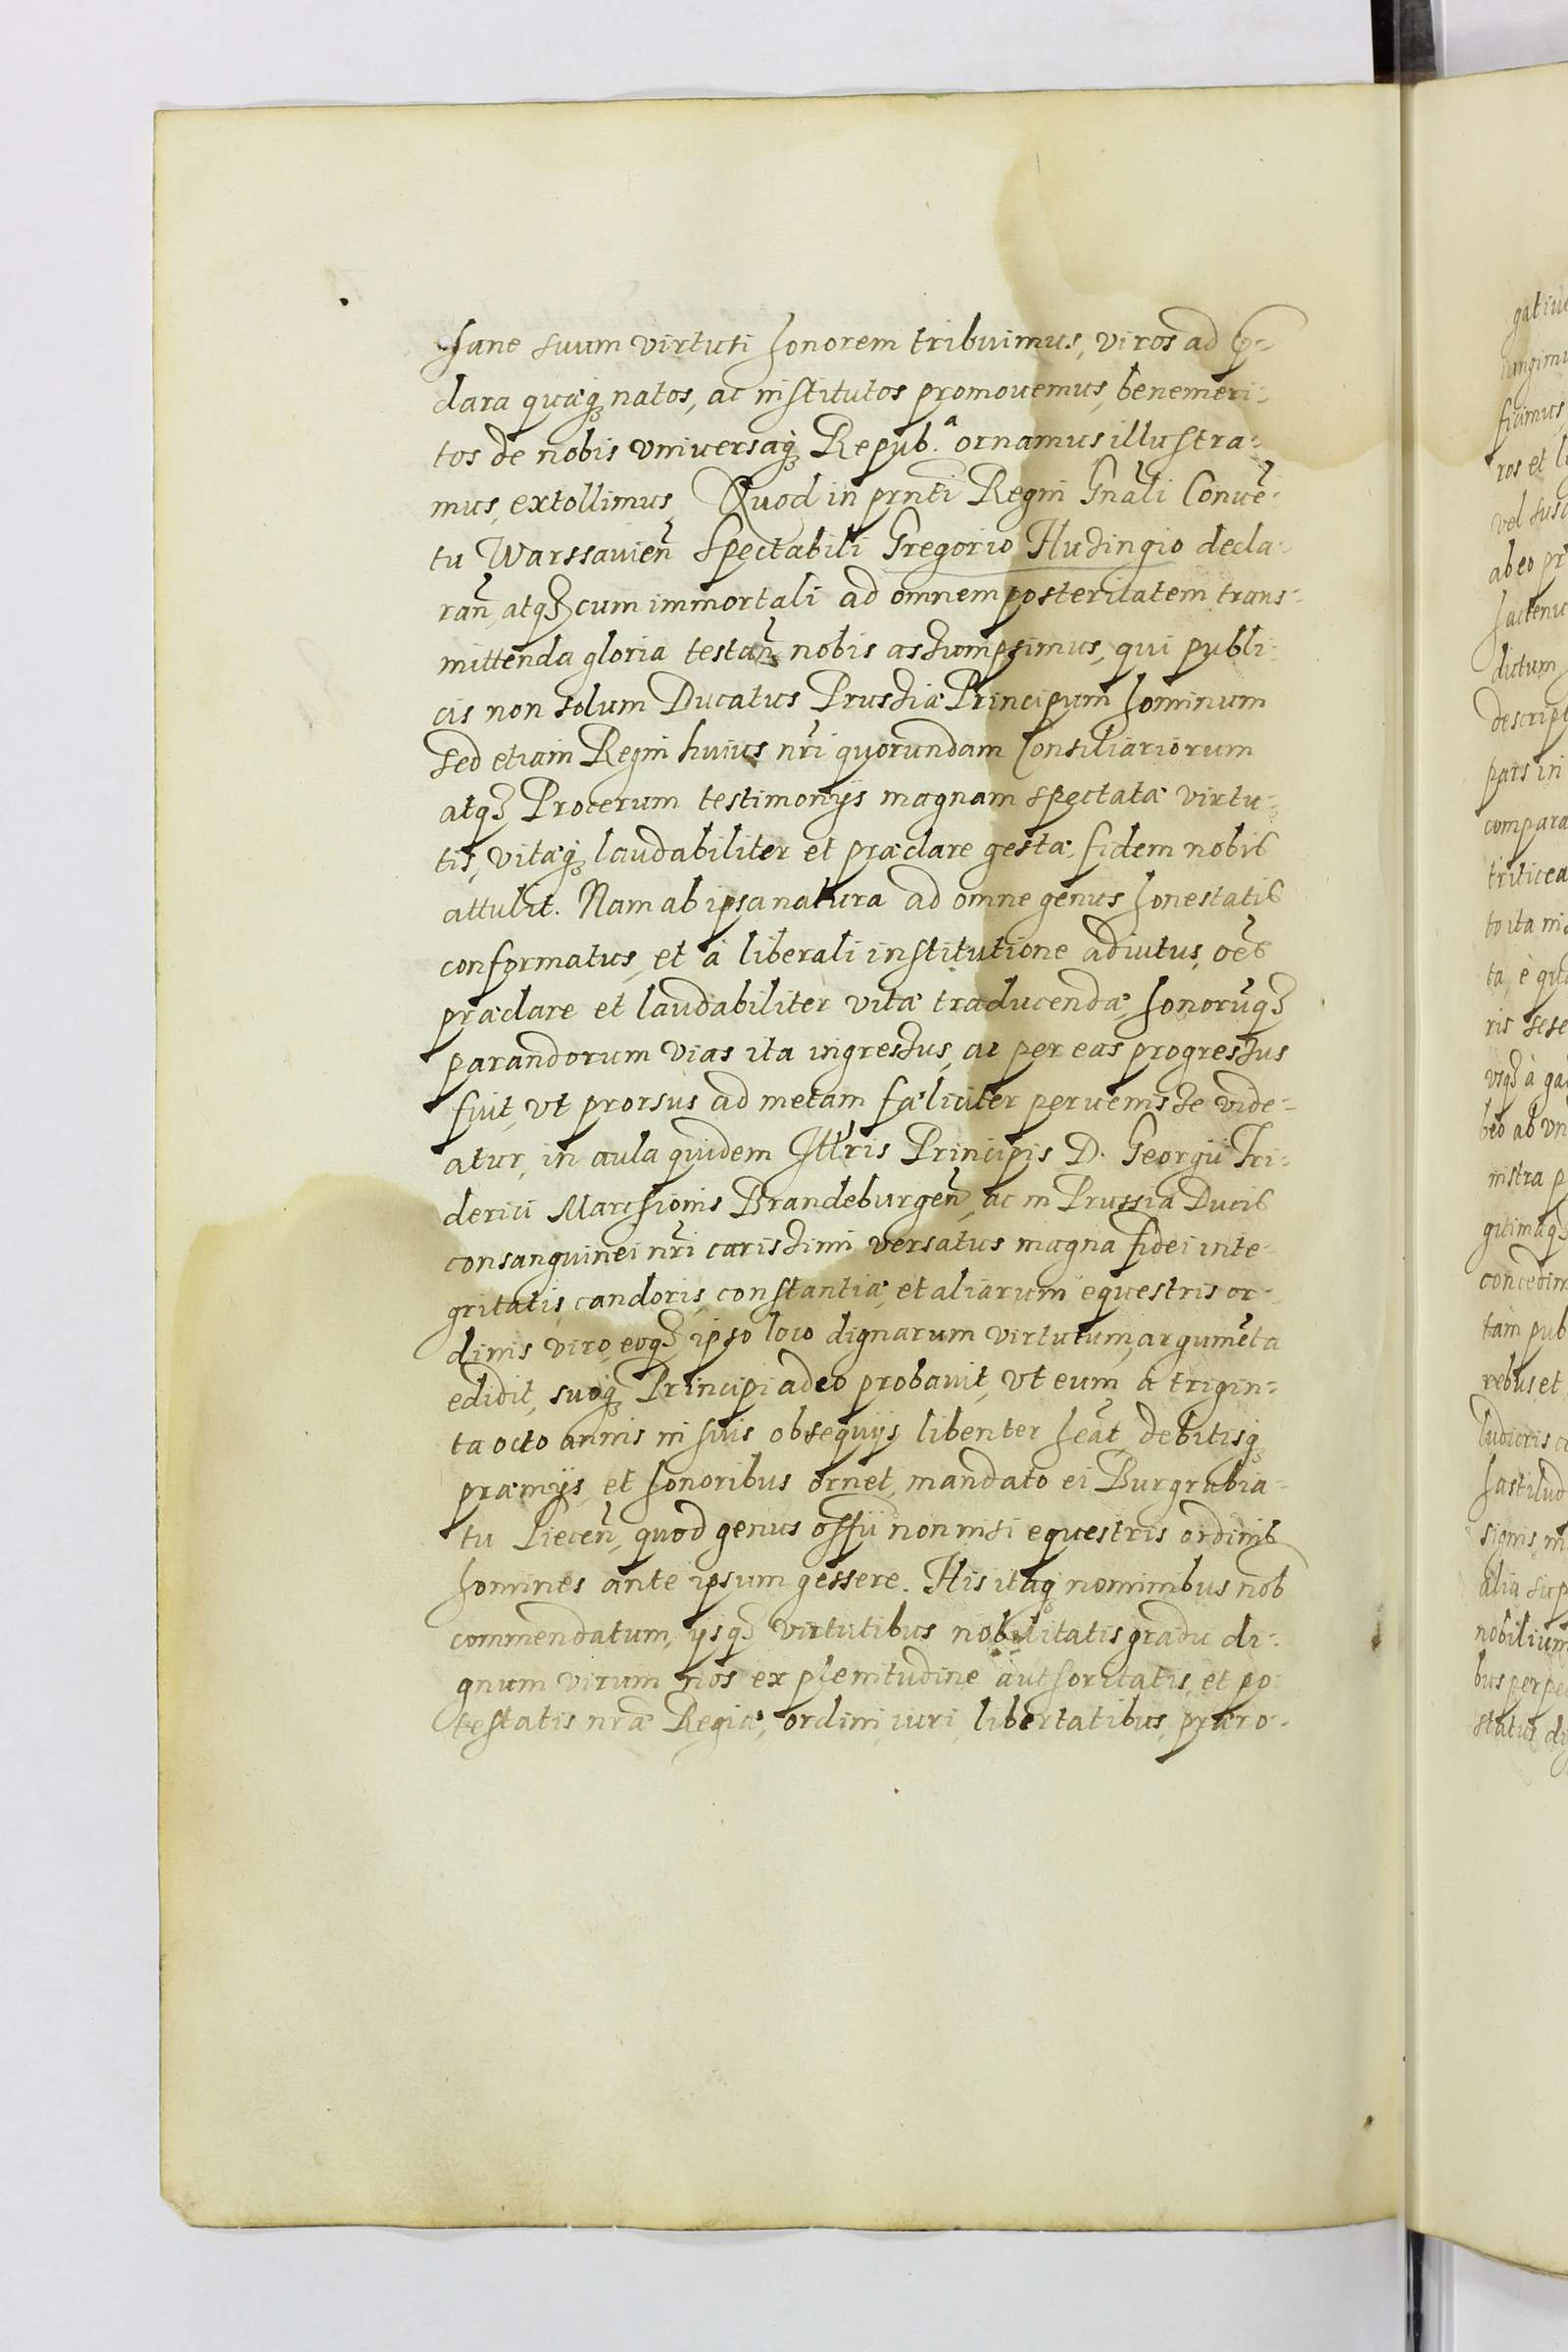 hanc suum virtuti honorem tribuimus, viros ad p̄-
clara quæq; natos, ac institutos promouemus, benemeri-
tos de nobis vniversaq; Repub.ᵃ ornamus illustra-
mus, extollimus, Quod in prn̄ti Regni Gn̄ali Conuē-
tu Warssavien̄ Spectabili Gregorio Hudingio decla-
ran̄, atq; cum immortali ad omnem posteritatem trans-
mittenda gloria testan̄ nobis assumpsimus, qui publi-
cis non solum Ducatus Prussiæ Principum hominum
sed etiam Regni huius nr̄i quorundam Consiliariorum
atq; Procerum testimonijs magnam spectatæ virtu-
tis, vitæq; laudabiliter et præclare gestæ, fidem nobis
attulit. Nam ab ipsa natura ad omne genus honestatis
conformatus, et à liberali institutione adiutus, oēs
præclare et laudabiliter vitæ traducendæ, honorūq;
parandorum vias ita ingressus, ac per eas progressus
fuit, vt prorsus ad metam fæliciter peruenisse vide-
atur, in aula quidem Ill̄ris Principis D. Georgii Fri-
derici Marchionis Brandeburgen̄, ac in Prussia Ducis
consanguinei nr̄i carissimi versatus magna fidei inte-
gritatis, candoris, constantiæ, et aliarum equestris or-
dinis viro, eoq; ipso loco dignarum virtutum, argumēta
edidit, suoq; Principi adeo probauit, vt eum a trigin-
ta octo annis in suis obsequijs libenter heāt, debitisq;
præmijs, et honoribus ornet, mandato ei Burgrabia-
tu Liecen̄, quod genus offii non nisi equestris ordinis
homines ante ipsum gessere. His itaq; nominibus nob
commendatum, ijsq; virtutibus nobilitatis gradu di-
gnum virum nos ex plenitudine authoritatis, et po-
testatis nr̄æ Regiæ, ordini, iuri, libertatibus, præro-